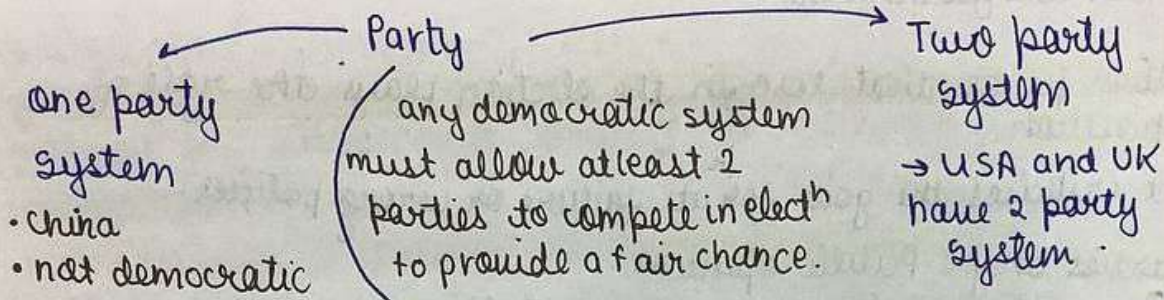 Party
one party
system
• China
• not democratic
any democratic system
must allow atleast 2
parties to compete in electⁿ
to provide a fair chance.
Two party
system
→ USA and UK
have 2 party
system.